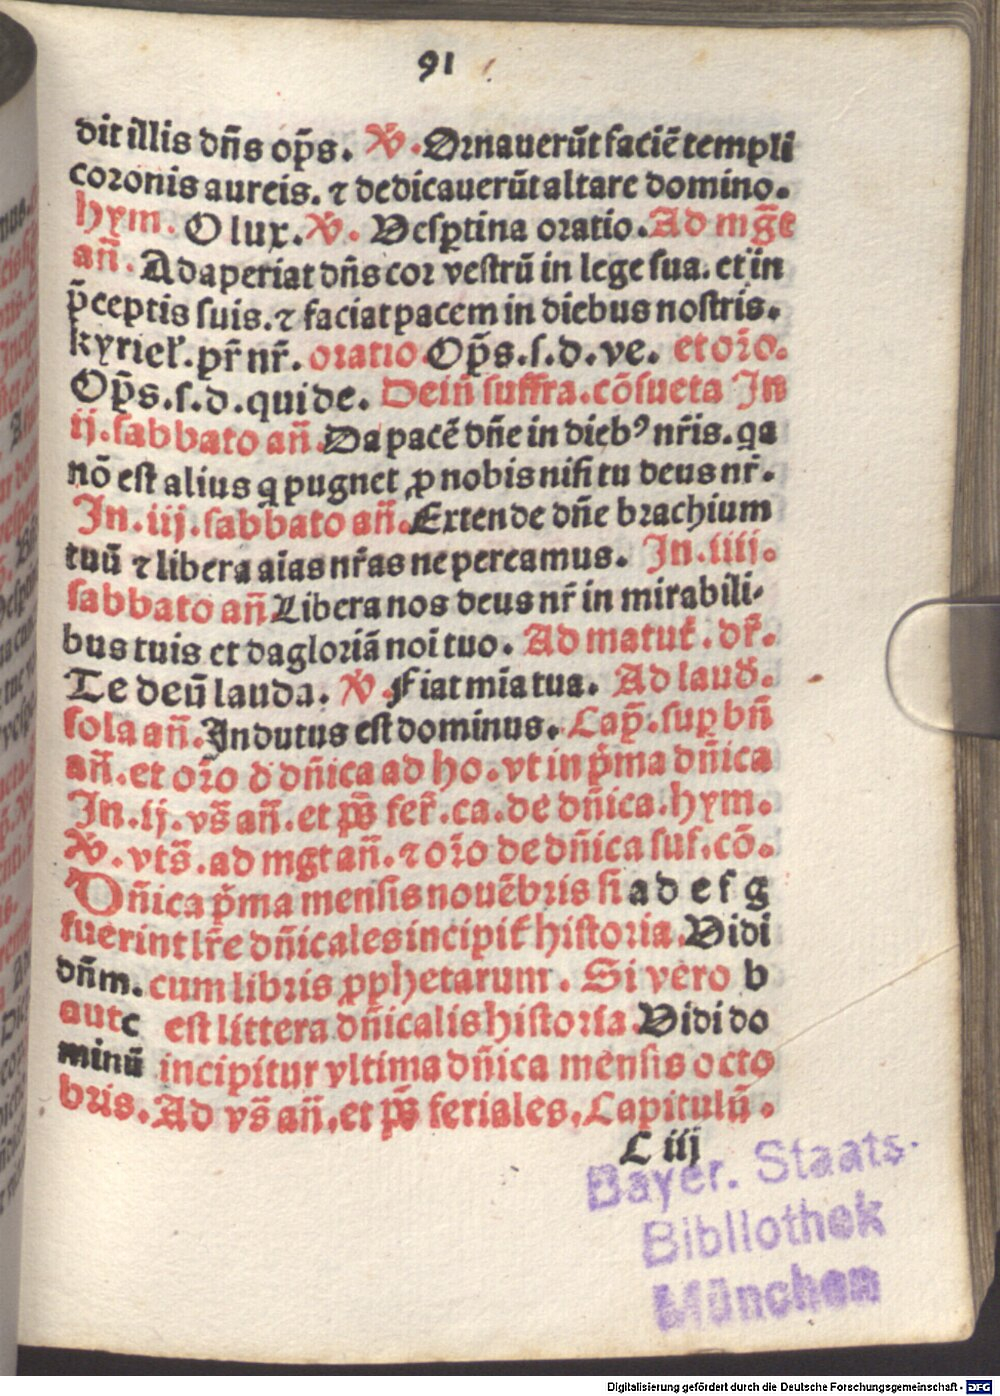 91
dit illis dn̄s op̄s. ℣. Ornauerūt faciē templi
coronis aureis. ⁊ dedicauerūt altare domino.
hym. O lux. ℣. Vesptina oratio. Ad mg̅t
an̄. Adaperiat dn̄s cor vestrū in lege sua. et in
p̄ceptis suis. ⁊ faciat pacem in diebus nostris.
kyriel'. pr̄ nr̄. oratio. Op̄s. s. d. ve. et or̄o.
Op̄s. s. d. qui de. Dein̄ suffra. cōsueta In
ij. sabbato an̄. Da pacē dn̄e in dieb⁹ nr̄is. qa
nō est alius q pugnet ꝓ nobis nisi tu deus nr̄.
In. iij. sabbato an̄. Extende dn̄e brachium
tuū ⁊ libera aīas nr̄as ne pereamus. In. iiij.
sabbato an̄ Libera nos deus nr̄ in mirabili-
bus tuis et da gloriā noi tuo. Ad matut̄. dr̄.
Te deū lauda. ℣. Fiat mīa tua. Ad laud̄.
sola an̄. Indutus est dominus. Cap̄. sup bn̄
an̄. et or̄o d dn̄ica ad ho. vt in p̄ma dn̄ica
In. ij. vs̄ an̄. et ps̄ fer̄. ca. de dn̄ica. hym.
℣. vts̄. ad mgt an̄. ⁊ or̄o de dn̄ica suf. cō.
Dn̄ica p̄ma mensis nouēbris si a d e f g
fuerint lr̄e dn̄icales incipit̄ historia. Vidi
dn̄m. cum libris ꝓphetarum. Si vero b
aut c est littera dn̄icalis historia. Vidi do
minū incipitur vltima dn̄ica mensis octo
bris. Ad vs̄ an̄. et ps̄ feriales. Capitulū.
C iij
Bayer. Staats-
Bibliothek
München
Digitalisierung gefördert durch die Deutsche Forschungsgemeinschaft - DFG